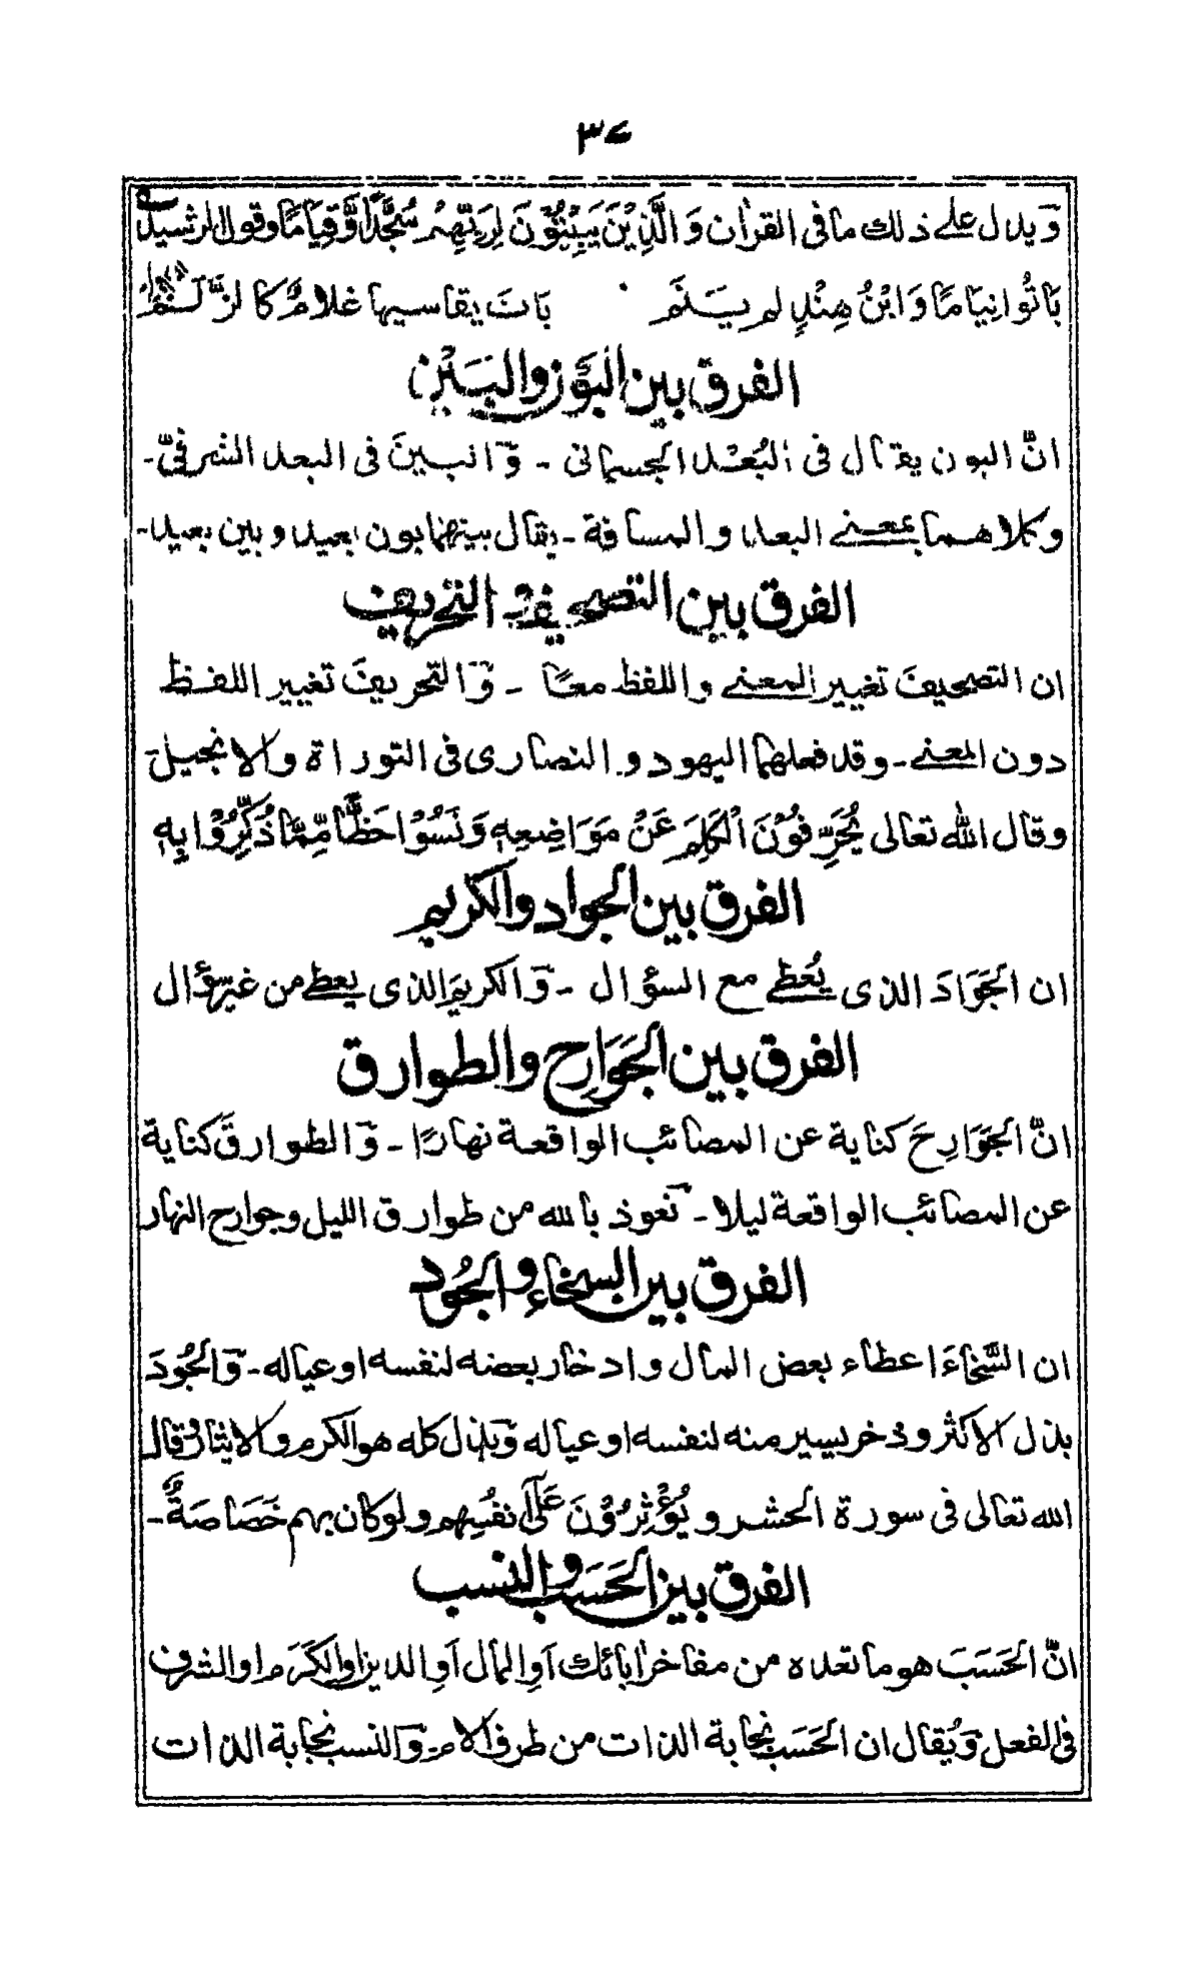 وَيدل على ذلك ما فى القران وَالَّذِيْنَ يَبِيْتُوْنَ لِرَبِّهِمْ سُجَّدًا وَّقِيَامًا وقول الرشيد
بَاتُوا نِيَامًا وَابْنُ هِنْدٍ لم يَنَم بَاتَ يقاسيها غلامٌ كالزَّلَم
الفرق بين البَوْن والبَيْن
انَّ البون يقال فى البُعْد الجسمانى - وَالبينَ فى البعد الشرفىّ -
وكلاهما بمعنى البعد والمسافة - يقال بينهما بون بعيد وبين بعيد -
الفرق بين التصحيف والتحريف
ان التصحيفَ تغيير المعنى واللفظ معًا - وَالتحريفَ تغيير اللفظ
دون المعنى - وقد فعلهما اليهود والنصارى فى التوراة والانجيل
وقال الله تعالى يُحَرِّفُوْنَ الْكَلِمَ عَنْ مَوَاضِعِهٖ وَنَسُوْا حَظًّا مِّمَّا ذُكِّرُوْا بِهٖ
الفرق بين الجواد والكريم
ان الجَوَادَ الذى يُعْطى مع السؤال - وَالكريمَ الذى يعطى من غير سؤال
الفرق بين الجَوَارِح والطوارق
انَّ الجَوَارِحَ كناية عن المصائب الواقعة نهارًا - وَالطوارقَ كناية
عن المصائب الواقعة ليلا - نعوذ بالله من طوارق الليل وجوارح النهار
الفرق بين السخاء والجُود
ان السَّخَاءَ اعطاء بعض المال وادخار بعضه لنفسه او عياله - وَالجُودَ
بذل الاكثر وذخر يسير منه لنفسه او عياله وَبذل كله هو الكرم والايثار وقال
الله تعالى فى سورة الحشر ويُؤْثِرُوْنَ عَلٰى اَنفُسِهم ولو كان بهم خَصَاصَةٌ -
الفرق بين الحَسَب والنسب
انَّ الحَسَبَ هو ما تعده من مفاخر ابائك اَوِ المال اَوِ الدين او الكَرَم او الشرف
فى الفعل وَيُقال ان الحَسَب نجابة الذات من طرف الام وَالنسب نجابة الذات